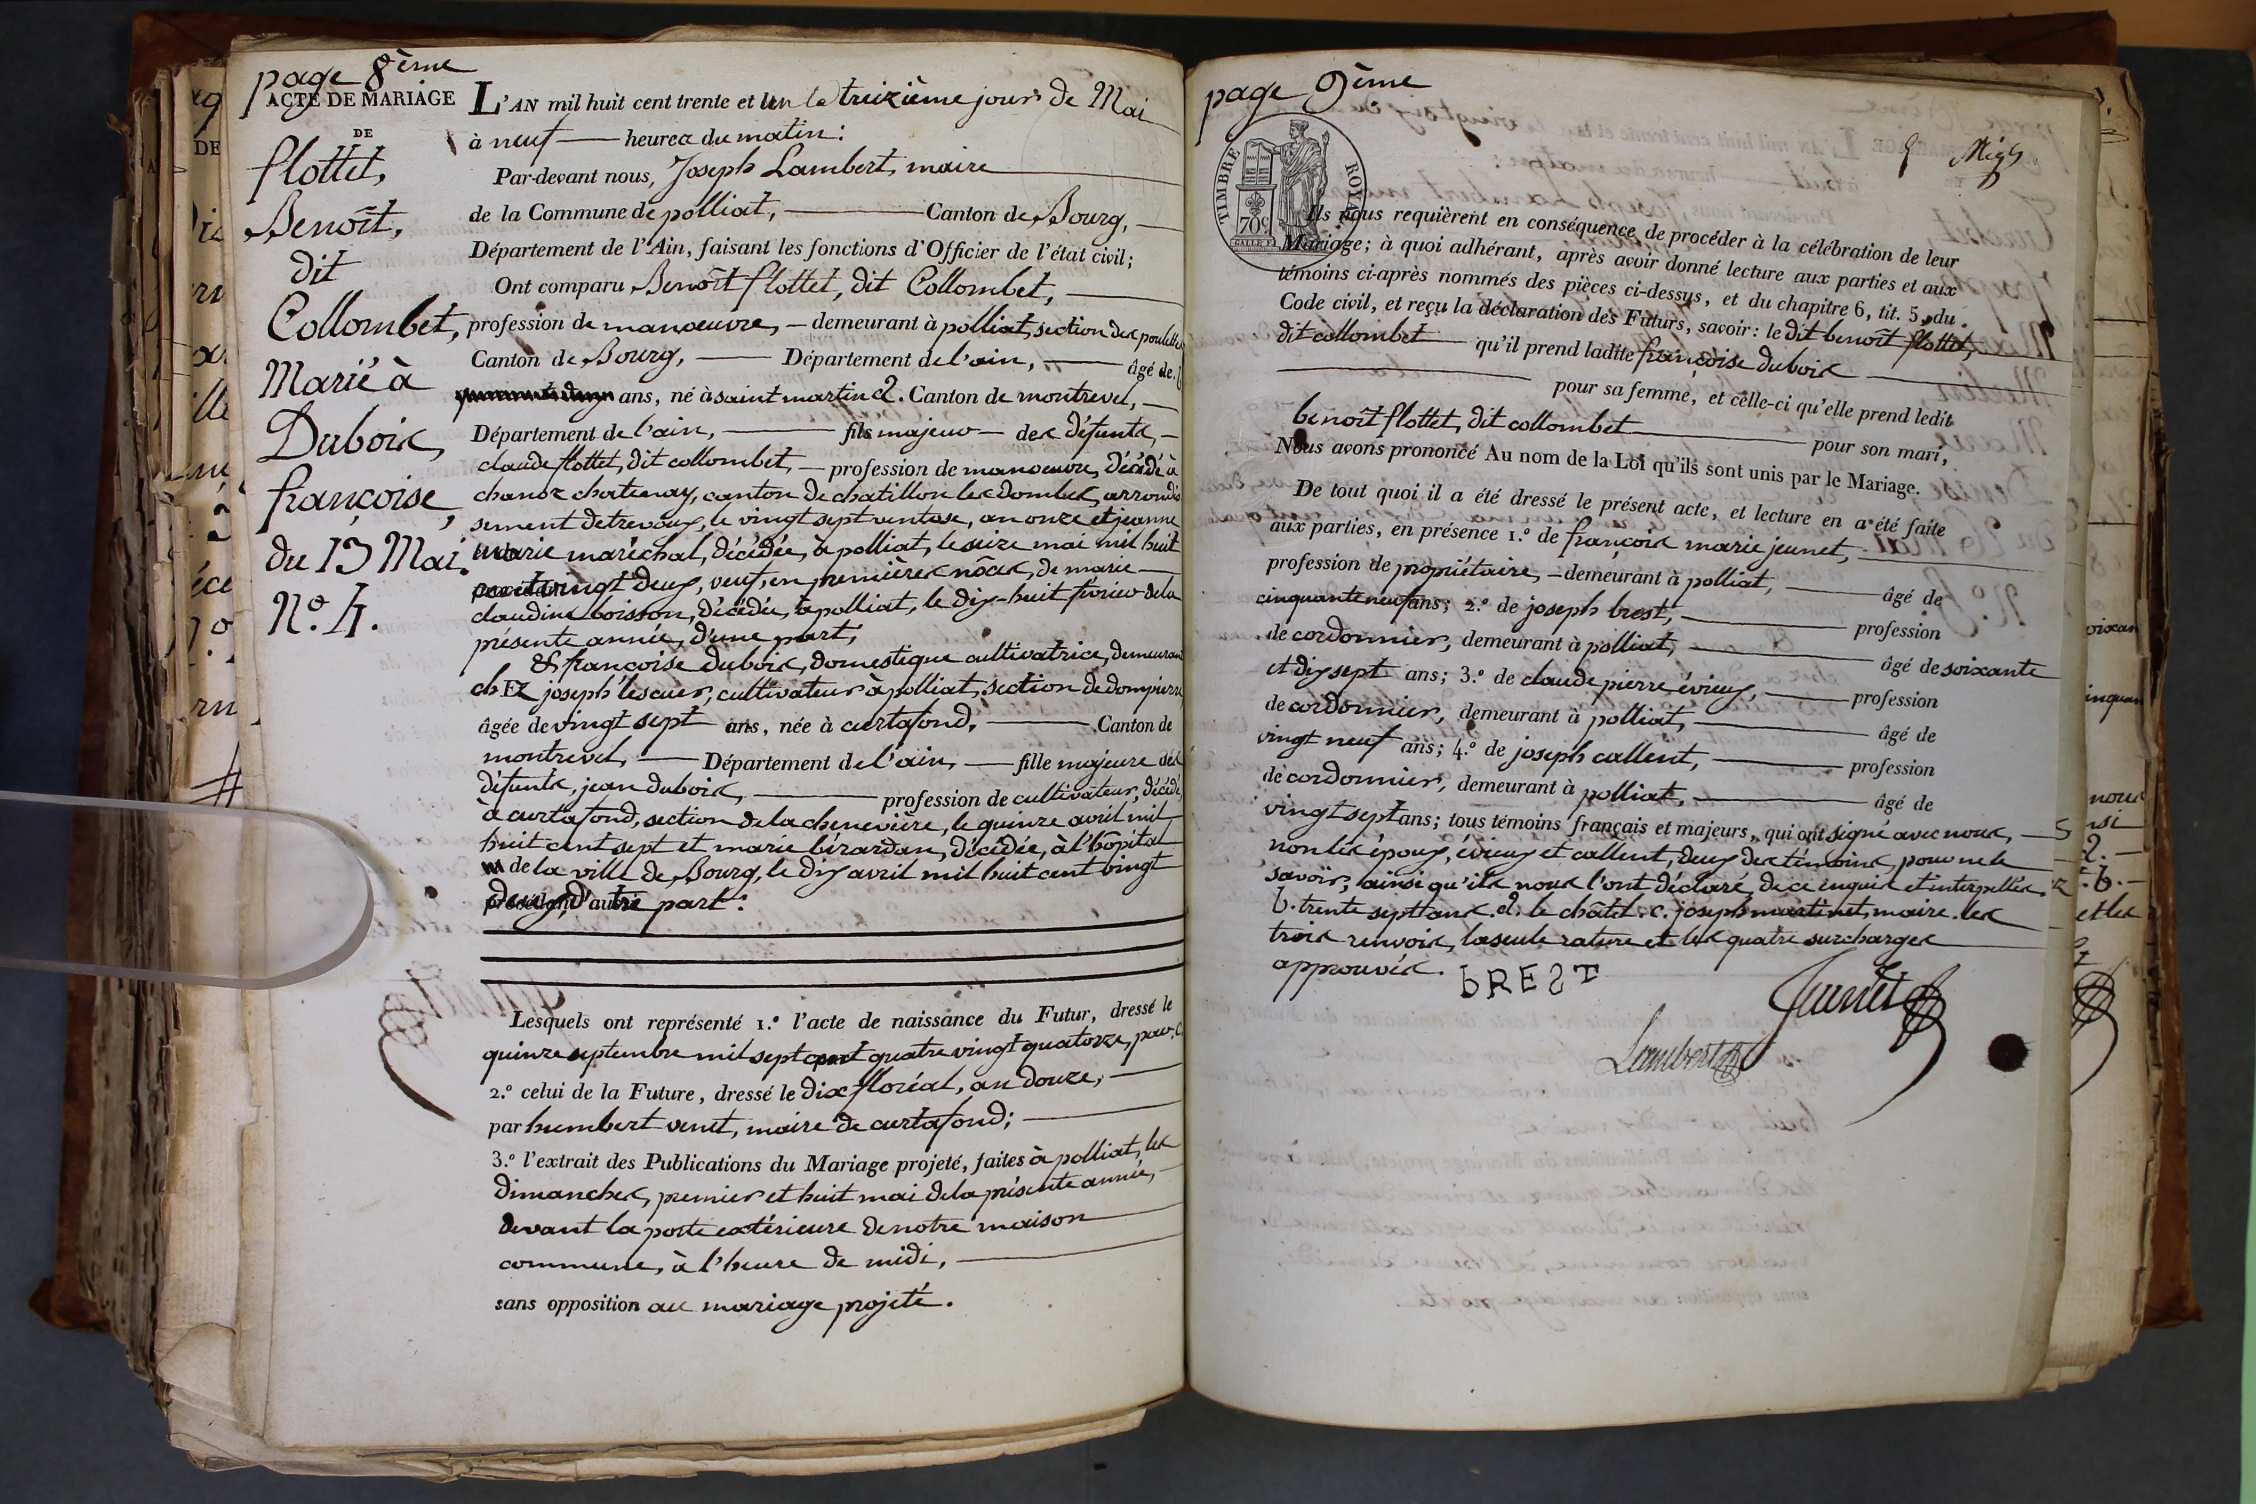 page 8ème
ACTE DE MARIAGE
DE
flottet,
Benoît,
dit
Collombet,
Marié à
Dubois,
françoise,
du 13 Mai.
N.º 4.
L'AN mil huit cent trente et un le treizième jour de Mai
à neuf — heures du matin :
Par-devant nous, Joseph Lambert, maire
de la Commune de polliat, — Canton de Bourg,
Département de l'Ain, faisant les fonctions d'Officier de l'état civil;
Ont comparu Benoît flottet, dit Collombet,
profession de manoeuvre, — demeurant à polliat, section des poulettes
Canton de Bourg, — Département de l'ain, — âgé de b
ans, né à saint martin d. Canton de montrevel,
Département de l'ain, — fils majeur — des défunts,
claude flottet, dit collombet, — profession de manoeuvre, décédé à
chanoz chatenay, canton de chatillon les dombes, arrondis
sement de trevoux, le vingt sept ventose, an onze et jeanne
marie maréchal, décédée, à polliat, le seize mai mil huit
cent vingt deux, veuf, en premières nôces, de marie
claudine boisson, décédée, à polliat, le dix-huit février de la
présente année, d'une part,
& françoise dubois, domestique cultivatrice, demeurant
chez joseph lescuer, cultivateur à polliat, section de dompierre,
âgée de vingt sept ans, née à curtafond, — Canton de
montrevel, — Département de l'ain, — fille majeure des
défunts, jean dubois, — profession de cultivateur, décédé,
à curtafond, section de la chenevière, le quinze avril mil
huit cent sept et marie bérardan, décédée, à l'hôpital
de la ville de Bourg, le dix avril mil huit cent vingt
deux, d'autre part :
Lesquels ont représenté 1.º l'acte de naissance du Futur, dressé le
quinze septembre mil sept cent quatre vingt quatorze, par. c.
2.º celui de la Future, dressé le dix floréal, an douze,
par humbert venet, maire de curtafond;
3.º l'extrait des Publications du Mariage projeté, faites à polliat, les
dimanches, premier et huit mai de la présente année,
devant la porte extérieure de notre maison
commune, à l'heure de midi,
sans opposition au mariage projeté.
page 9ème
TIMBRE ROYAL
70c
Ils nous requièrent en conséquence de procéder à la célébration de leur
Mariage; à quoi adhérant, après avoir donné lecture aux parties et aux
témoins ci-après nommés des pièces ci-dessus, et du chapitre 6, tit. 5, du
Code civil, et reçu la déclaration des Futurs, savoir : le dit benoît flottet,
dit collombet — qu'il prend ladite françoise dubois
pour sa femme, et celle-ci qu'elle prend ledit
benoît flottet, dit collombet — pour son mari,
Nous avons prononcé Au nom de la Loi qu'ils sont unis par le Mariage.
De tout quoi il a été dressé le présent acte, et lecture en a été faite
aux parties, en présence 1.º de françois marie jeunet,
profession de propriétaire, — demeurant à polliat, — âgé de
cinquante neuf ans; 2.º de joseph brest, — profession
de cordonnier, demeurant à polliat, — âgé de soixante
et dix sept ans; 3.º de claude pierre évieux, — profession
de cordonnier, demeurant à polliat, — âgé de
vingt neuf ans; 4.º de joseph callent, — profession
de cordonnier, demeurant à polliat, — âgé de
vingt sept ans; tous témoins français et majeurs, qui ont signé avec nous,
non les époux, évieux et callent, deux des témoins, pour ne le
savoir, ainsi qu'ils nous l'ont déclaré, de ce enquis et interpellés.
b. trente sept ans. d. le châtel. c. joseph martinet, maire. les
trois renvois, la seule rature et les quatre surcharges
approuvés.
bREST
Jeunet
Lambert